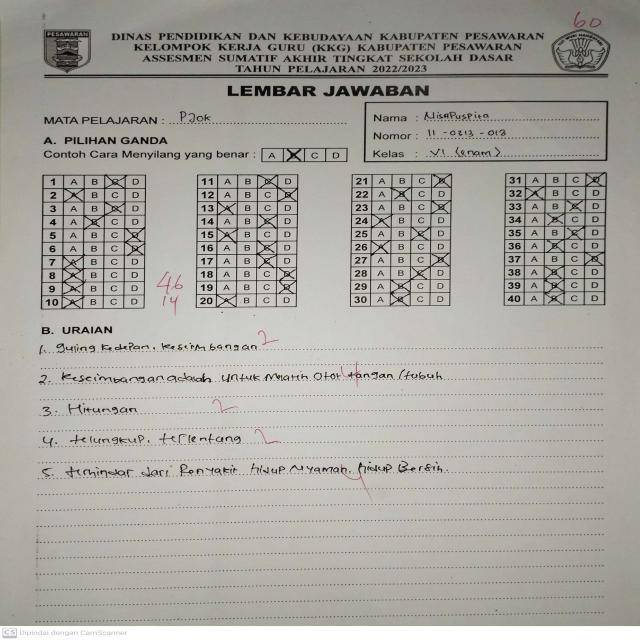 60
PESAWARAN
DINAS PENDIDIKAN DAN KEBUDAYAAN KABUPATEN PESAWARAN
KELOMPOK KERJA GURU (KKG) KABUPATEN PESAWARAN
ASSESMEN SUMATIF AKHIR TINGKAT SEKOLAH DASAR
TAHUN PELAJARAN 2022/2023
LEMBAR JAWABAN
MATA PELAJARAN : PJok
Nama : NisaPuspita
Nomor : 11 - 0213 - 013
Kelas : VI (enam)
A. PILIHAN GANDA
Contoh Cara Menyilang yang benar : A B C D
1 A B C D
2 A B C D
3 A B C D
4 A B C D
5 A B C D
6 A B C D
7 A B C D
8 A B C D
9 A B C D
10 A B C D
46
14
11 A B C D
12 A B C D
13 A B C D
14 A B C D
15 A B C D
16 A B C D
17 A B C D
18 A B C D
19 A B C D
20 A B C D
21 A B C D
22 A B C D
23 A B C D
24 A B C D
25 A B C D
26 A B C D
27 A B C D
28 A B C D
29 A B C D
30 A B C D
31 A B C D
32 A B C D
33 A B C D
34 A B C D
35 A B C D
36 A B C D
37 A B C D
38 A B C D
39 A B C D
40 A B C D
B. URAIAN
1. guling kedepan, keseimbangan 2
2. keseimbangan adalah untuk Melatih Otot tangan / tubuh 4
3. Hitungan 2
4. telungkup, terlentang 2
5. terhindar dari Penyakit Hidup Nyaman, Hidup Bersih. 4
CS Dipindai dengan CamScanner